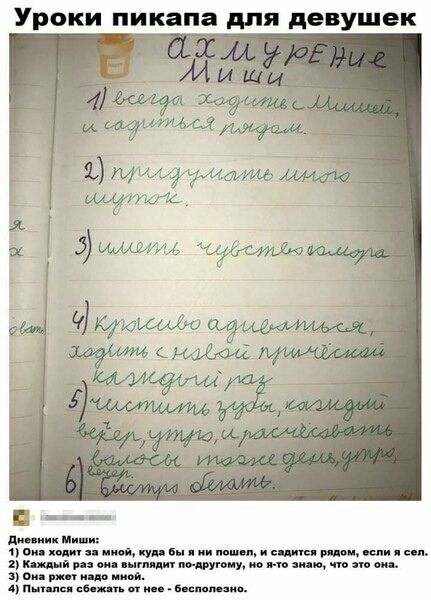 Уроки пикапа для девушек
ахмурение
Миши
1) всегда ходить с Мишей,
и садиться рядом.
2) придумать много
шуток.
3) иметь чувство юмора
4) красиво адиваться,
ходить с новой причёской
каждый раз
5) чистить зубы, каждый
вечер, утро, и расчёсовать
волосы тоже день, утро,
вечер.
6) Быстро бегать.
я
Дневник Миши:
1) Она ходит за мной, куда бы я ни пошел, и садится рядом, если я сел.
2) Каждый раз она выглядит по-другому, но я-то знаю, что это она.
3) Она ржет надо мной.
4) Пытался сбежать от нее - бесполезно.